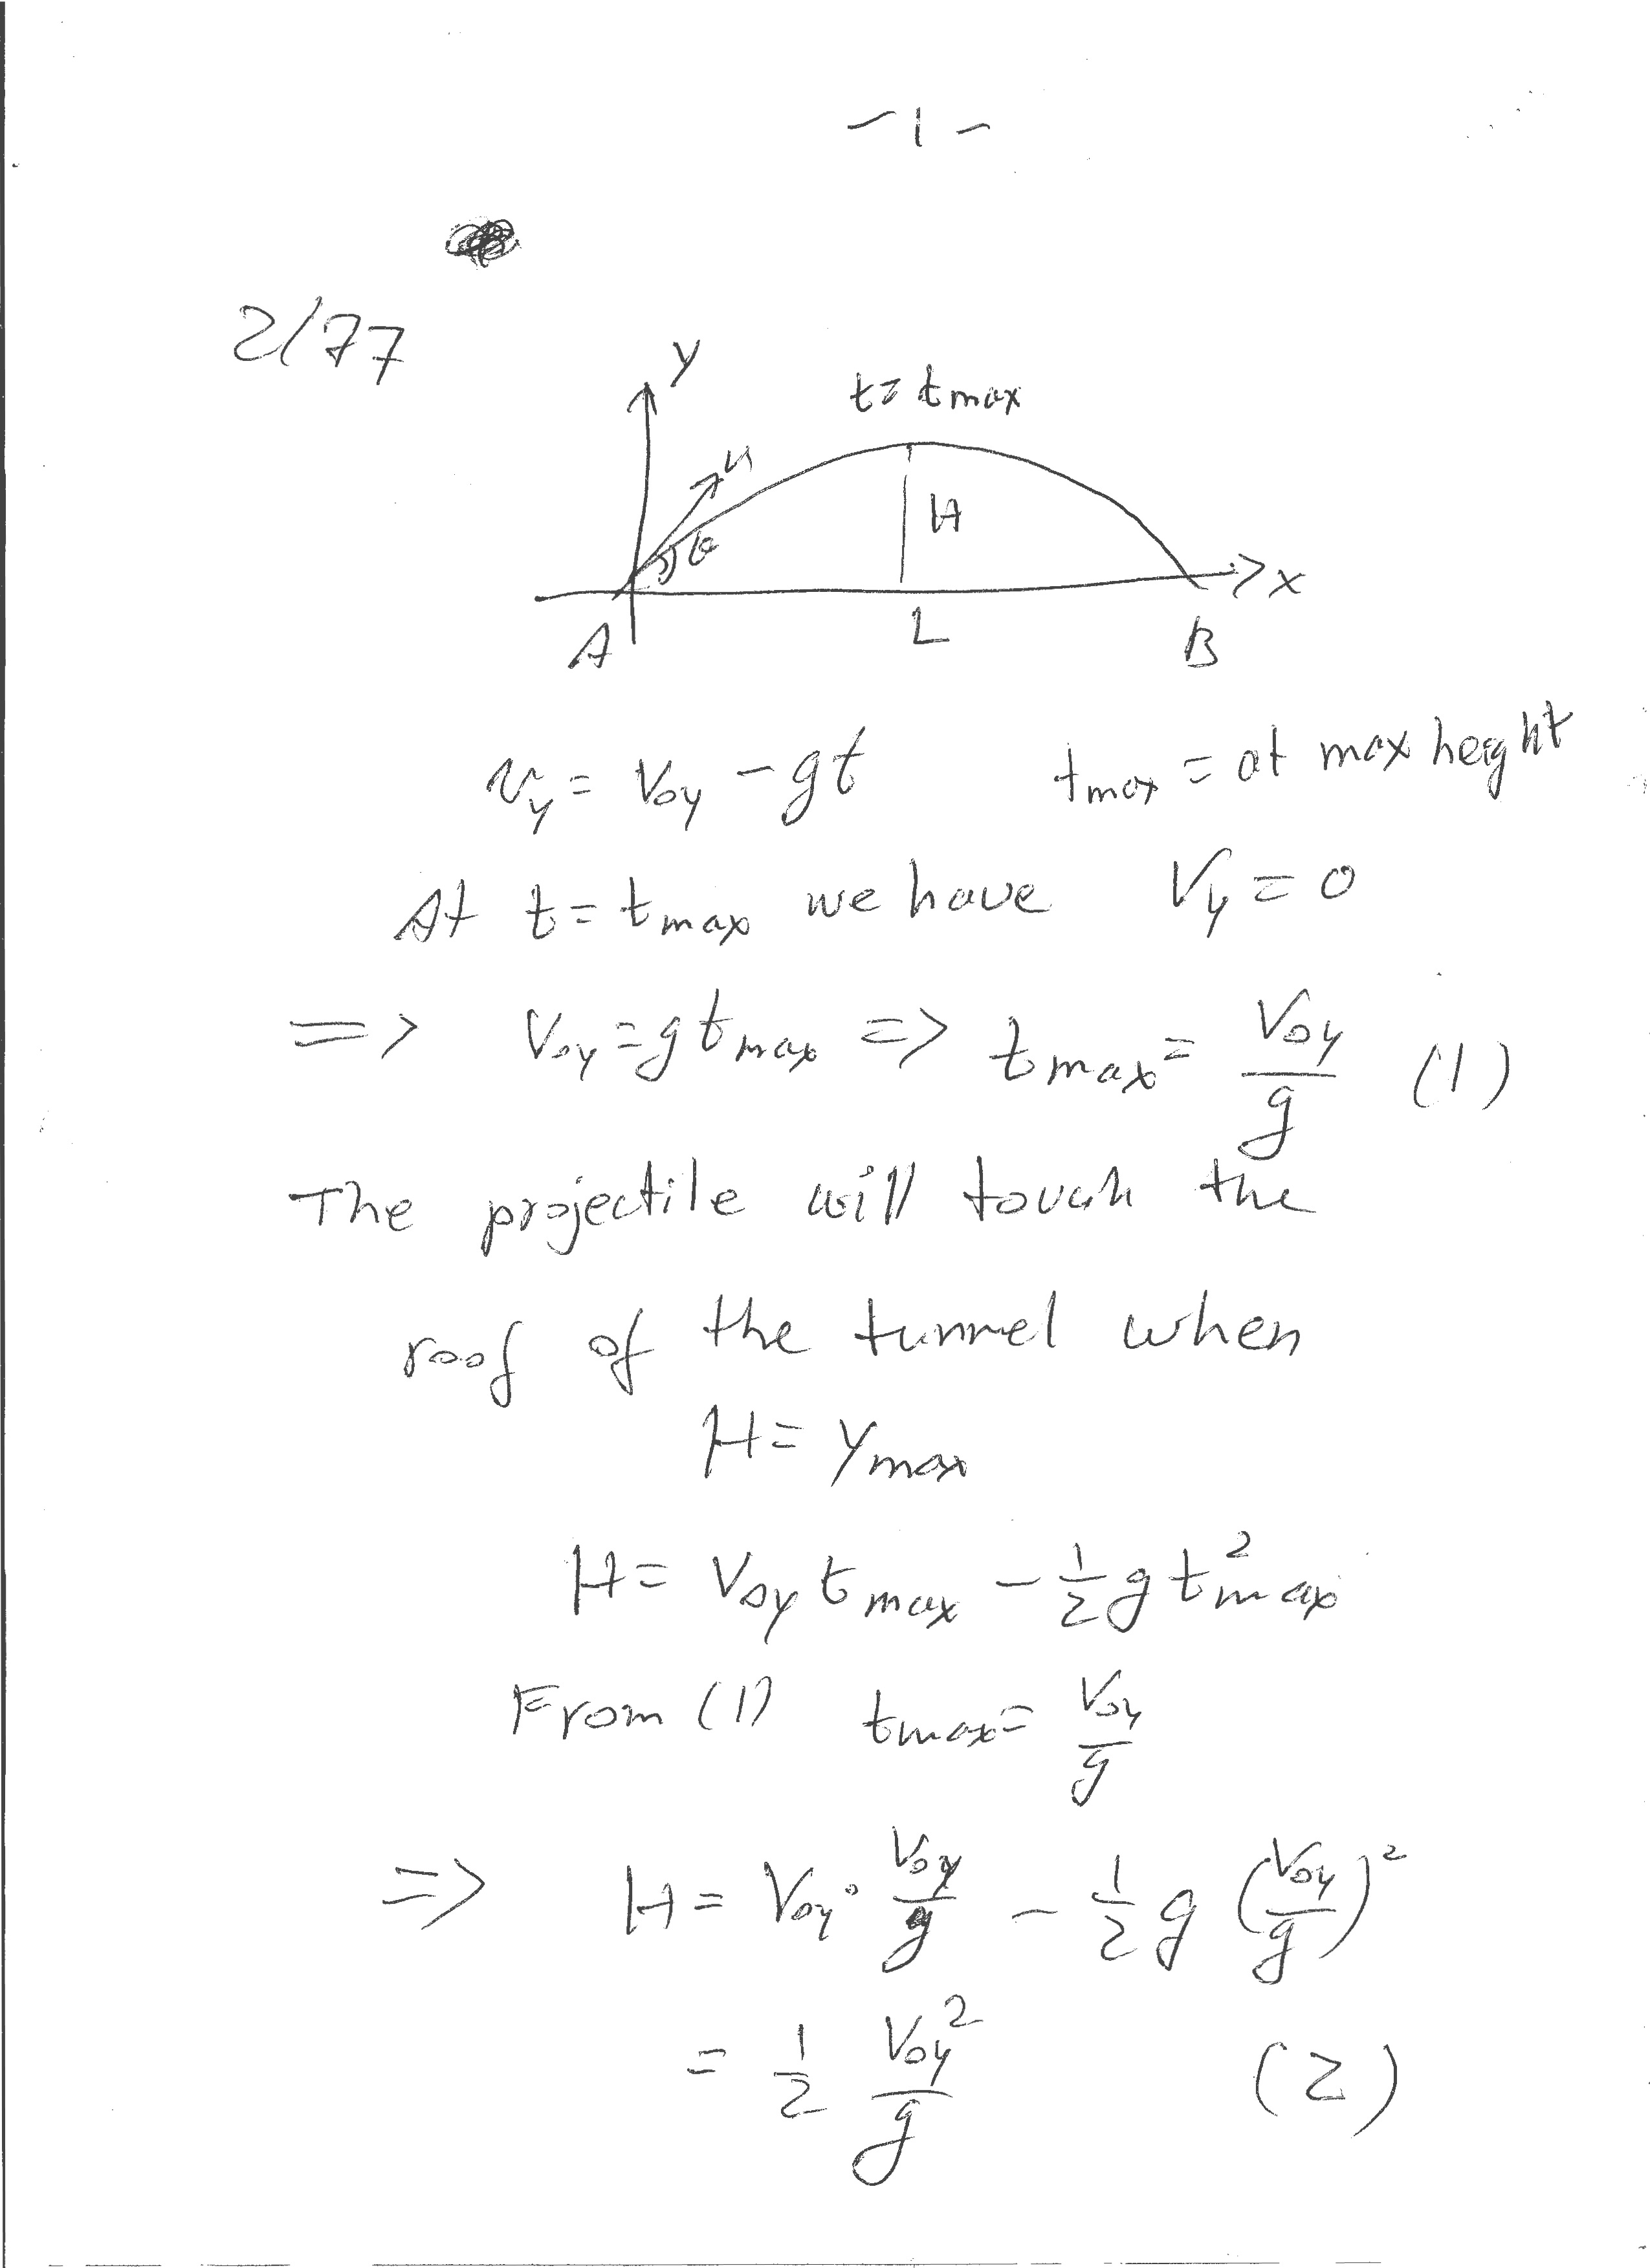 -1-
2/77
y
t = tmax
u
θ
H
x
A
L
B
vy = Voy - gt    tmax = at max height
At t = tmax we have Vy = 0
=> Voy = g tmax => tmax = Voy/g (1)
The projectile will touch the
roof of the tunnel when
H = ymax
H = Voy tmax - 1/2 g t²max
From (1) tmax = Voy/g
=> H = Voy · Voy/g - 1/2 g (Voy/g)²
= 1/2 Voy²/g (2)